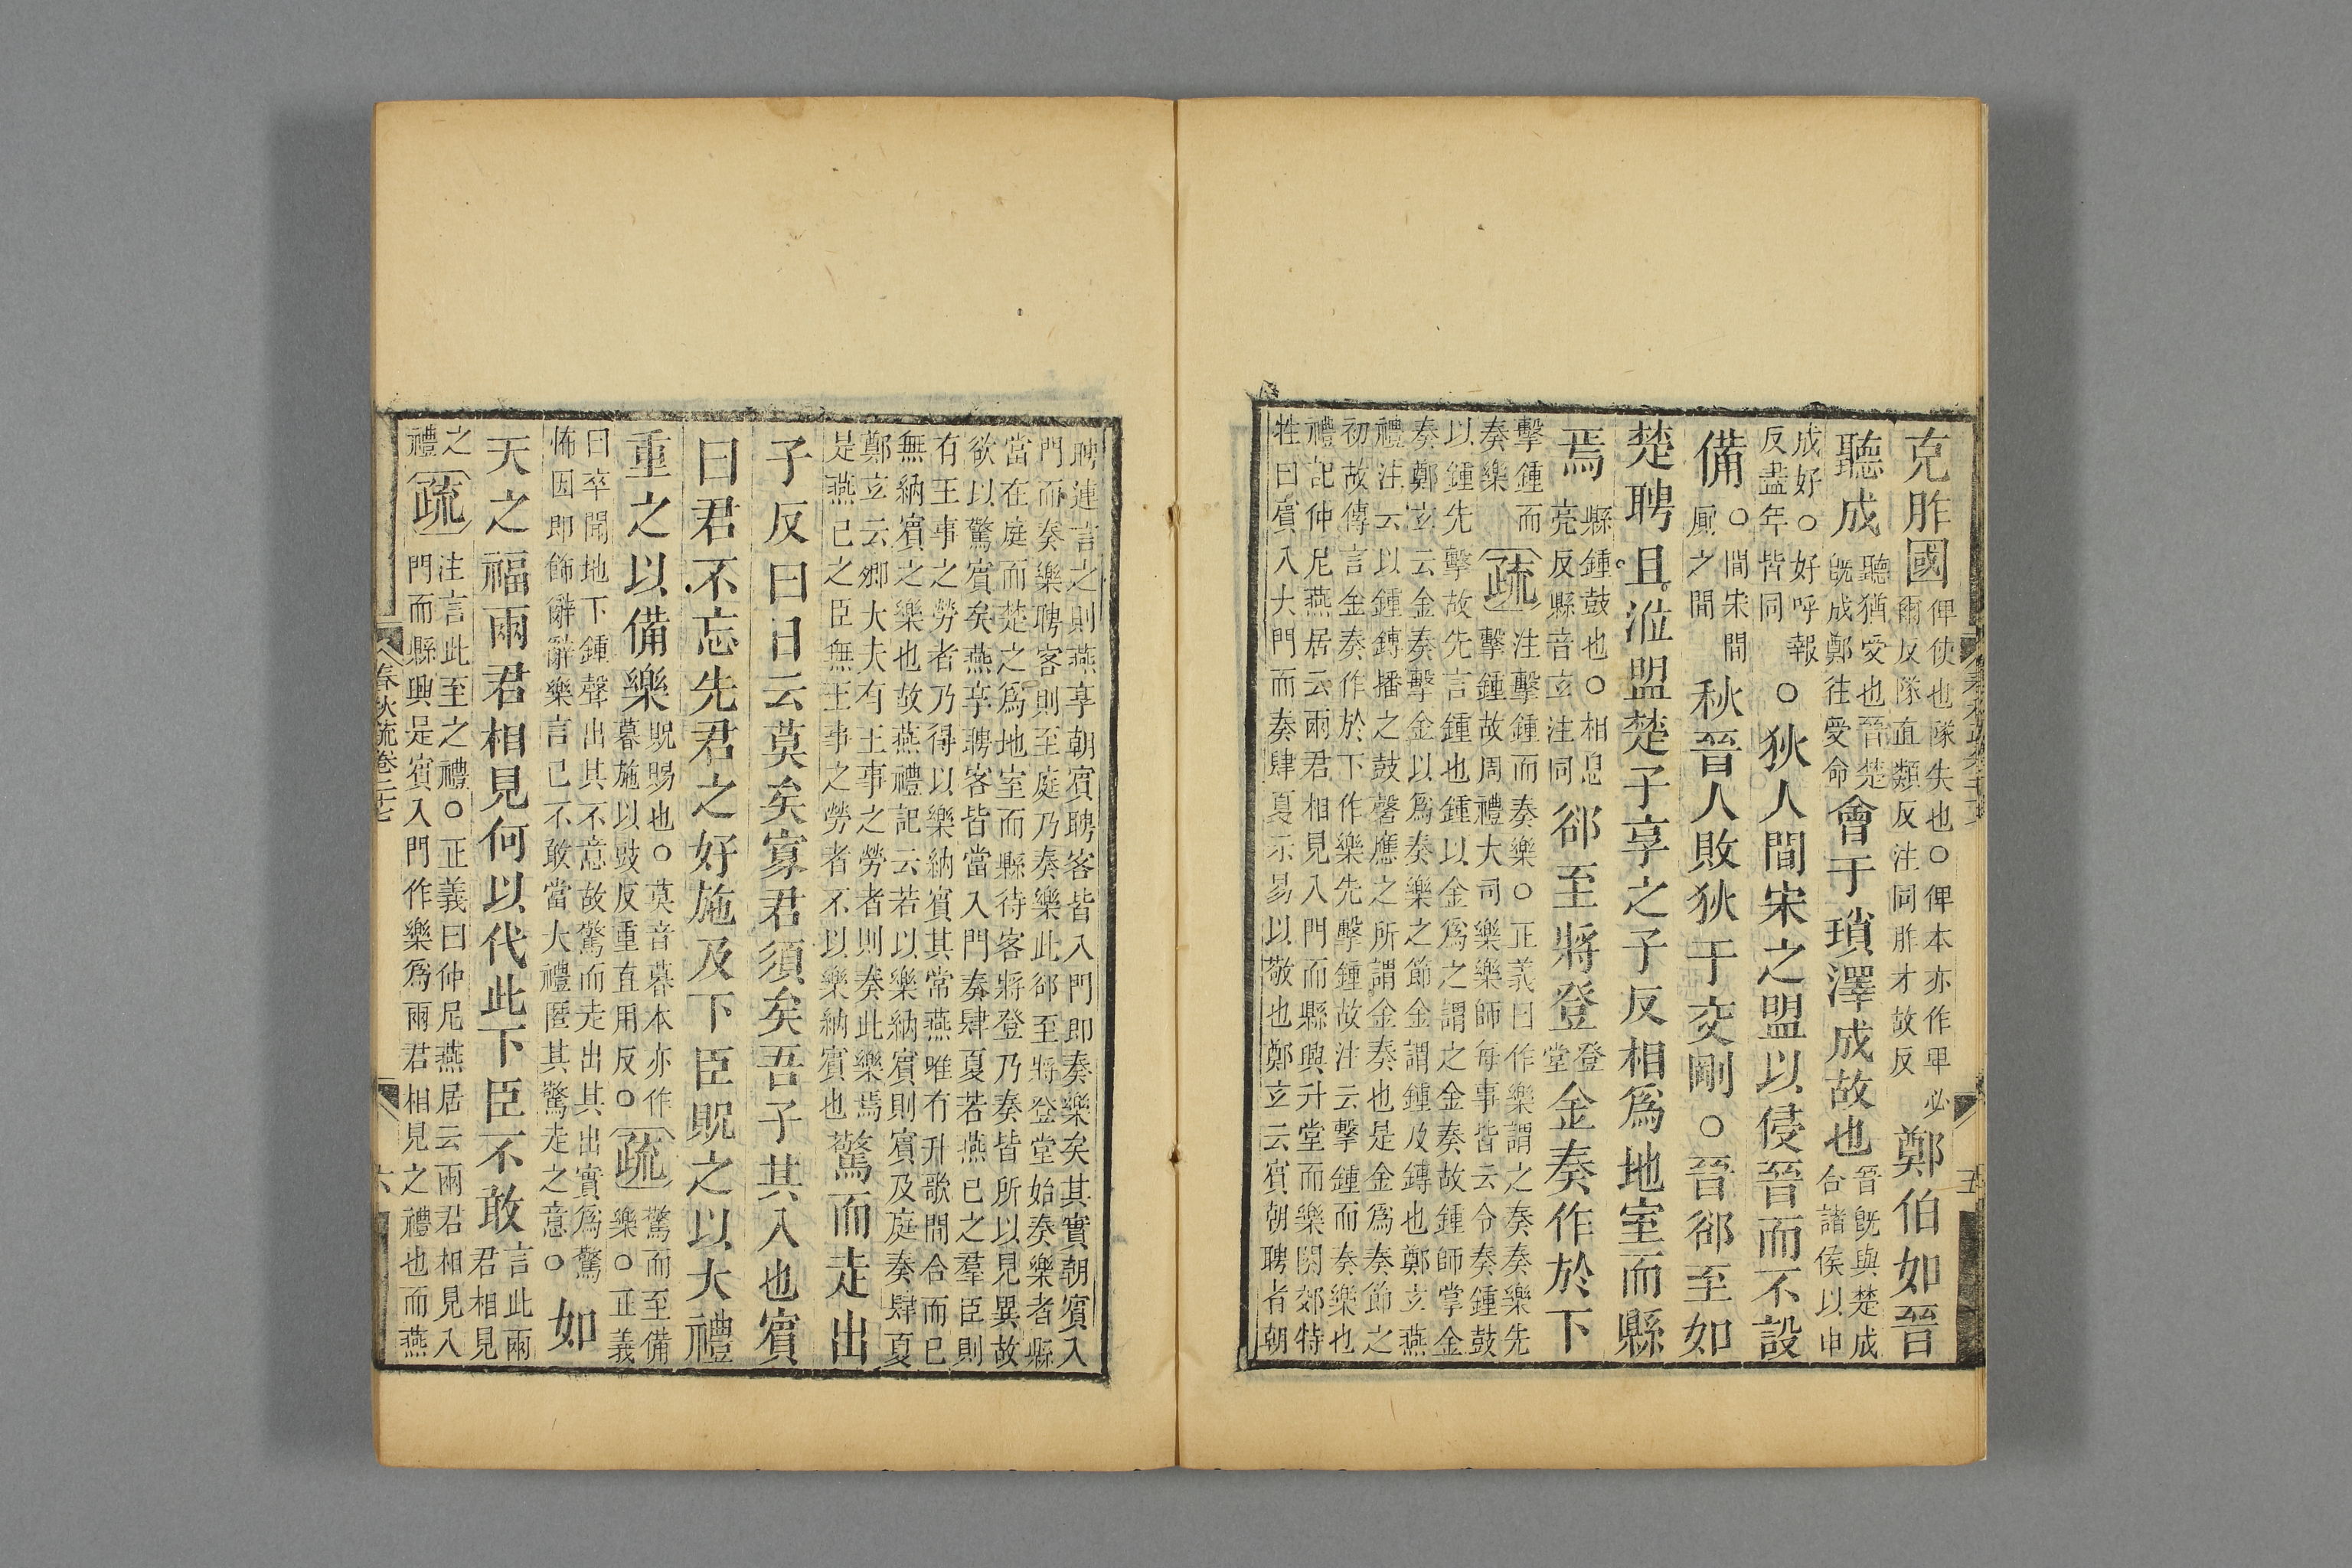 克胙國俾使也隊失也○俾本亦作卑必爾反隊直類反注同胙才故反鄭伯如晉
聽成聽猶受也晉楚既成鄭往受命會于瑣澤成故也晉既與楚成合諸侯以申
成好○好呼報反盡年皆同○狄人間宋之盟以侵晉而不設
備○間宋間廁之間秋晉人敗狄于交剛○晉郤至如
楚聘且涖盟楚子享之子反相爲地室而縣
焉縣鍾鼓也○相息亮反縣音玄注同郤至將登登堂金奏作於下
擊鍾而奏樂疏注擊鍾而奏樂○正義曰作樂謂之奏奏樂先擊鍾故周禮大司樂樂師每事皆云令奏鍾鼓
以鍾先擊故先言鍾也鍾以金爲之謂之金奏故鍾師掌金奏鄭玄云金奏擊金以爲奏樂之節金謂鍾及鎛也鄭玄燕
禮注云以鍾鎛播之鼓磬應之所謂金奏也是金爲奏節之初故傳言金奏作於下作樂先擊鍾故注云擊鍾而奏樂也
禮記仲尼燕居云兩君相見入門而縣興升堂而樂闋郊特牲曰賓入大門而奏肆夏示易以敬也鄭玄云賓朝聘者朝
聘連言之則燕享朝賓聘客皆入門即奏樂矣其實朝賓入門而奏樂聘客則至庭乃奏樂此郤至將登堂始奏樂者縣
當在庭而楚之爲地室而縣待客將登乃奏皆所以見異故欲以驚賓矣燕享聘客皆當入門奏肆夏若燕已之羣臣則
有王事之勞者乃得以樂納賓其常燕唯有升歌間合而已無納賓之樂也故燕禮記云若以樂納賓則賓及庭奏肆夏
鄭玄云卿大夫有王事之勞者則奏此樂焉是燕已之臣無王事之勞者不以樂納賓也驚而走出
子反曰日云莫矣寡君須矣吾子其入也賓
曰君不忘先君之好施及下臣貺之以大禮
重之以備樂貺賜也○莫音暮本亦作暮施以豉反重直用反○疏驚而至備樂○正義
曰卒聞地下鍾聲出其不意故驚而走出其出實爲驚怖因即飾辭辭樂言已不敢當大禮匿其驚走之意○如
天之福兩君相見何以代此下臣不敢言此兩君相見
之禮疏注言此至之禮○正義曰仲尼燕居云兩君相見入門而縣興是賓入門作樂爲兩君相見之禮也而燕
春秋疏卷二十七
六
五